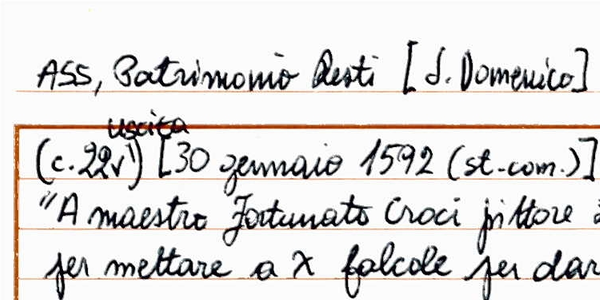 ASS, Patrimonio Resti [S. Domenico]
uscita
(c. 22v) [30 gennaio 1592 (st. com.)]
"A maestro Fortunato Croci pittore
per mettare a X falcole per dar